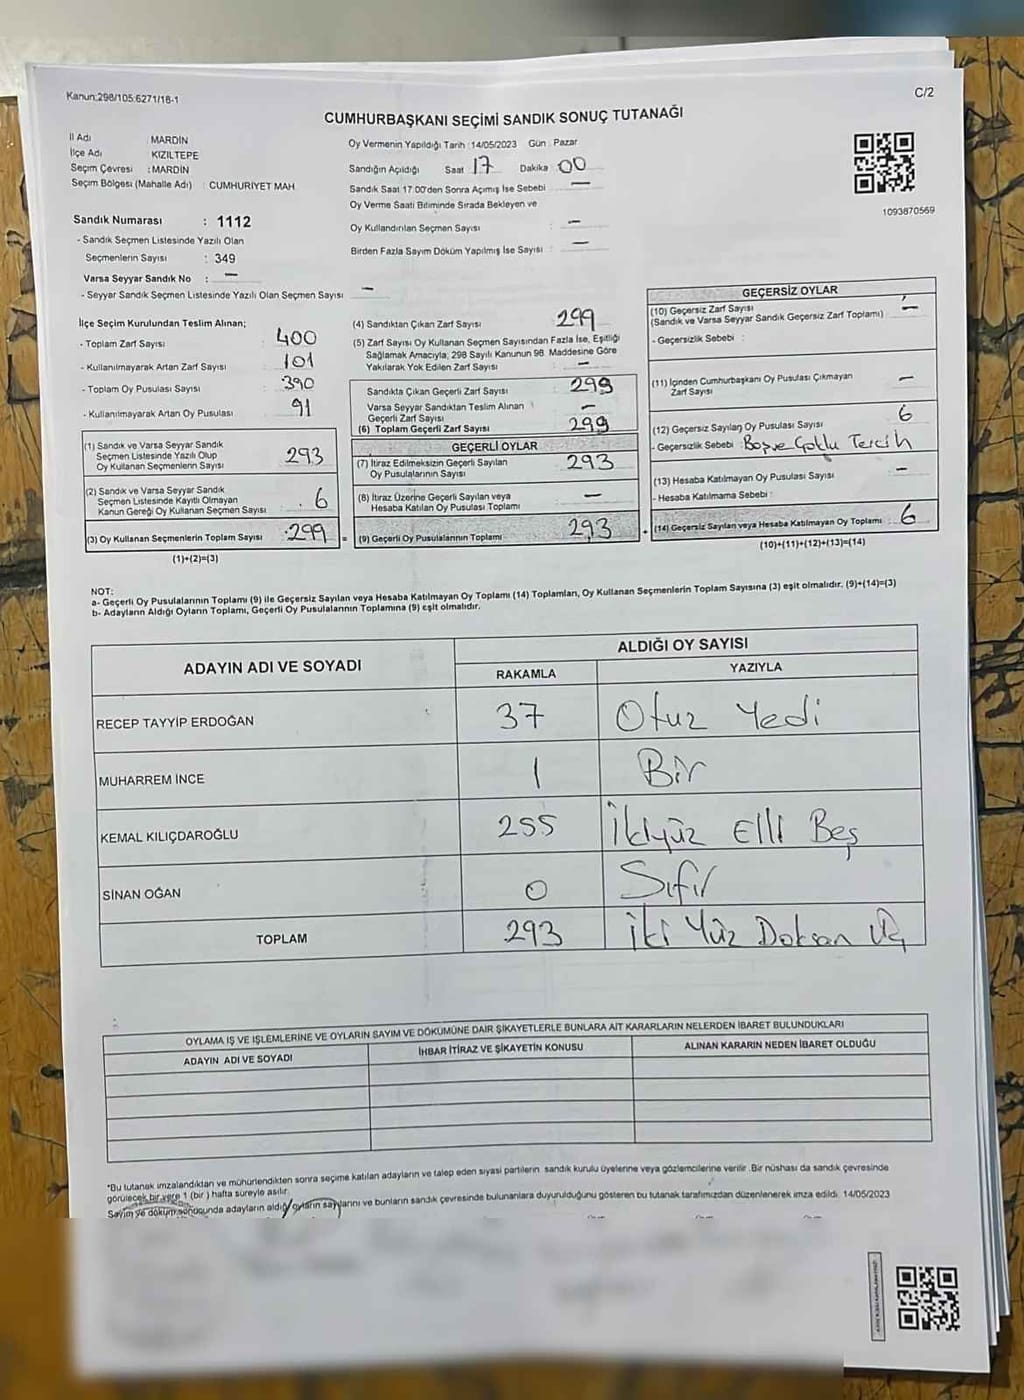 Kanun:298/105:6271/18-1
C/2
CUMHURBAŞKANI SEÇİMİ SANDIK SONUÇ TUTANAĞI
İl Adı : MARDİN
İlçe Adı : KIZILTEPE
Seçim Çevresi : MARDİN
Seçim Bölgesi (Mahalle Adı) : CUMHURİYET MAH.
Sandık Numarası : 1112
- Sandık Seçmen Listesinde Yazılı Olan
Seçmenlerin Sayısı : 349
Varsa Seyyar Sandık No : —
- Seyyar Sandık Seçmen Listesinde Yazılı Olan Seçmen Sayısı —
Oy Vermenin Yapıldığı Tarih :14/05/2023 Gün : Pazar
Sandığın Açıldığı Saat 17 Dakika 00
Sandık Saat 17:00'den Sonra Açımış İse Sebebi —
Oy Verme Saati Bitiminde Sırada Bekleyen ve
Oy Kullandırılan Seçmen Sayısı : —
Birden Fazla Sayım Döküm Yapılmış İse Sayısı : —
1093870569
İlçe Seçim Kurulundan Teslim Alınan;
- Toplam Zarf Sayısı : 400
- Kullanılmayarak Artan Zarf Sayısı : 101
- Toplam Oy Pusulası Sayısı : 390
- Kullanılmayarak Artan Oy Pusulası : 91
(1) Sandık ve Varsa Seyyar Sandık
Seçmen Listesinde Yazılı Olup
Oy Kullanan Seçmenlerin Sayısı : 293
(2) Sandık ve Varsa Seyyar Sandık
Seçmen Listesinde Kayıtlı Olmayan
Kanun Gereği Oy Kullanan Seçmen Sayısı : 6
(3) Oy Kullanan Seçmenlerin Toplam Sayısı : 299
(1)+(2)=(3)
(4) Sandıktan Çıkan Zarf Sayısı : 299
(5) Zarf Sayısı Oy Kullanan Seçmen Sayısından Fazla İse, Eşitliği
Sağlamak Amacıyla, 298 Sayılı Kanunun 98. Maddesine Göre
Yakılarak Yok Edilen Zarf Sayısı : —
Sandıkta Çıkan Geçerli Zarf Sayısı : 299
Varsa Seyyar Sandıktan Teslim Alınan
Geçerli Zarf Sayısı : —
(6) Toplam Geçerli Zarf Sayısı : 299
GEÇERLİ OYLAR
(7) İtiraz Edilmeksizin Geçerli Sayılan
Oy Pusulalarının Sayısı : 293
(8) İtiraz Üzerine Geçerli Sayılan veya
Hesaba Katılan Oy Pusulası Toplamı : —
= (9) Geçerli Oy Pusulalarının Toplamı : 293
GEÇERSİZ OYLAR
(10) Geçersiz Zarf Sayısı
(Sandık ve Varsa Seyyar Sandık Geçersiz Zarf Toplamı) : —
- Geçersizlik Sebebi :
(11) İçinden Cumhurbaşkanı Oy Pusulası Çıkmayan
Zarf Sayısı : —
(12) Geçersiz Sayılan Oy Pusulası Sayısı : 6
- Geçersizlik Sebebi : Boş ve Çoklu Tercih
(13) Hesaba Katılmayan Oy Pusulası Sayısı : —
- Hesaba Katılmama Sebebi :
+ (14) Geçersiz Sayılan veya Hesaba Katılmayan Oy Toplamı : 6
(10)+(11)+(12)+(13)=(14)
NOT:
a- Geçerli Oy Pusulalarının Toplamı (9) ile Geçersiz Sayılan veya Hesaba Katılmayan Oy Toplamı (14) Toplamları, Oy Kullanan Seçmenlerin Toplam Sayısına (3) eşit olmalıdır. (9)+(14)=(3)
b- Adayların Aldığı Oyların Toplamı, Geçerli Oy Pusulalarının Toplamına (9) eşit olmalıdır.
ADAYIN ADI VE SOYADI
ALDIĞI OY SAYISI
RAKAMLA YAZIYLA
RECEP TAYYİP ERDOĞAN 37 Otuz Yedi
MUHARREM İNCE 1 Bir
KEMAL KILIÇDAROĞLU 255 İkiyüz Elli Beş
SİNAN OĞAN 0 Sıfır
TOPLAM 293 İki Yüz Doksan Üç
OYLAMA İŞ VE İŞLEMLERİNE VE OYLARIN SAYIM VE DÖKÜMÜNE DAİR ŞİKAYETLERLE BUNLARA AİT KARARLARIN NELERDEN İBARET BULUNDUKLARI
ADAYIN ADI VE SOYADI İHBAR İTİRAZ VE ŞİKAYETİN KONUSU ALINAN KARARIN NEDEN İBARET OLDUĞU
*Bu tutanak imzalandıktan ve mühürlendikten sonra seçime katılan adayların ve talep eden siyasi partilerin sandık kurulu üyelerine veya gözlemcilerine verilir .Bir nüshası da sandık çevresinde
görülecek bir yere 1 (bir ) hafta süreyle asılır.
Sayım ve döküm sonucunda adayların aldığı oyların sayılarını ve bunların sandık çevresinde bulunanlara duyurulduğunu gösteren bu tutanak tarafımızdan düzenlenerek imza edildi. 14/05/2023